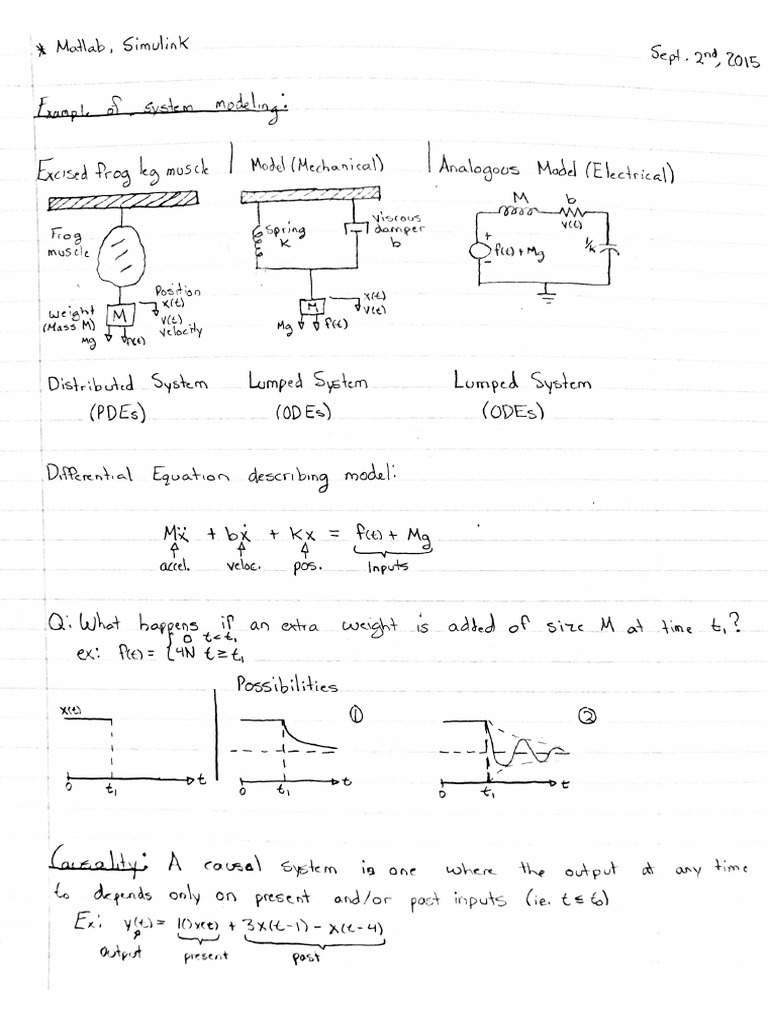 * Matlab, Simulink
Sept. 2nd, 2015
Example of system modeling:
Excised frog leg muscle | Model (Mechanical) | Analogous Model (Electrical)
Frog muscle
Position
x(t)
v(t)
velocity
Weight
(Mass M)
M
Mg
f(t)
Spring
K
Viscous
damper
b
M
x(t)
v(t)
Mg
f(t)
M
b
v(t)
+
-
f(t) + Mg
1/k
Distributed System
(PDEs)
Lumped System
(ODEs)
Lumped System
(ODEs)
Differential Equation describing model:
Mẍ + bẋ + Kx = f(t) + Mg
accel. veloc. pos. Inputs
Q: What happens if an extra weight is added of size M at time t₁?
ex: f(t) = { 0 t<t₁
4N t≥t₁
Possibilities
x(t)
0 t₁ t
①
0 t₁ t
②
0 t₁ t
Causality: A causal system is one where the output at any time
to depends only on present and/or past inputs (ie. t≤to)
Ex: y(t) = 10x(t) + 3x(t-1) - x(t-4)
output present past